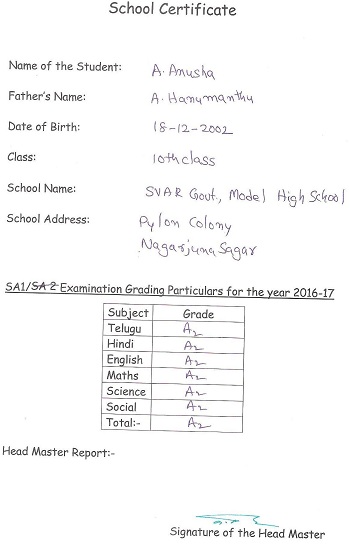 School Certificate
Name of the Student: A. Anusha
Father's Name: A. Hanumanthu
Date of Birth: 18-12-2002
Class: 10th class
School Name: SVAR Govt., Model High School
School Address: Pylon Colony
Nagarjuna Sagar
SA1/SA 2 Examination Grading Particulars for the year 2016-17
Subject Grade
Telugu A2
Hindi A2
English A2
Maths A2
Science A2
Social A2
Total:- A2
Head Master Report:-
Signature of the Head Master